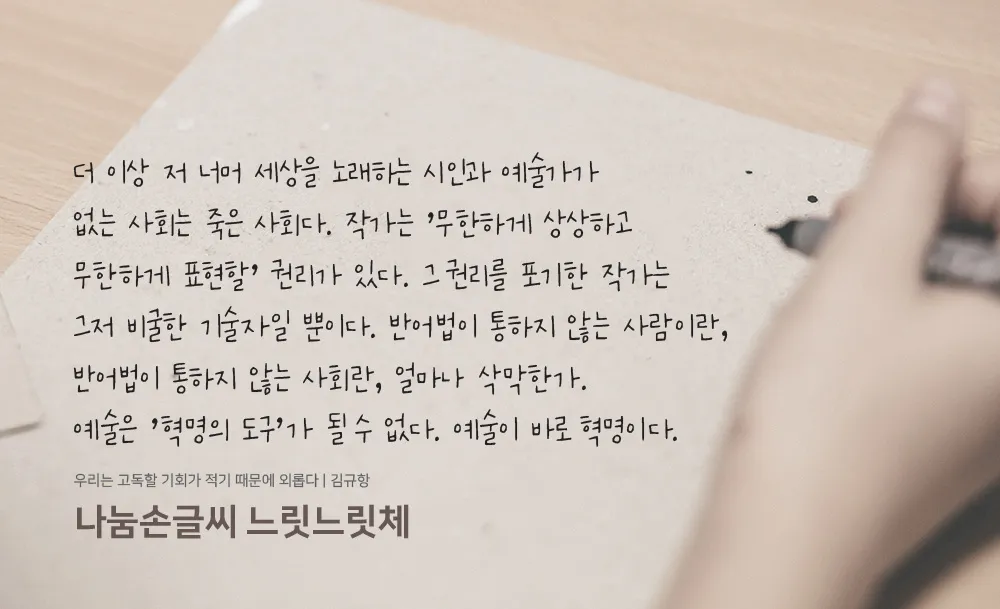 더 이상 저 너머 세상을 노래하는 시인과 예술가가
없는 사회는 죽은 사회다. 작가는 '무한하게 상상하고
무한하게 표현할' 권리가 있다. 그 권리를 포기한 작가는
그저 비굴한 기술자일 뿐이다. 반어법이 통하지 않는 사람이란,
반어법이 통하지 않는 사회란, 얼마나 삭막한가.
예술은 '혁명의 도구'가 될 수 없다. 예술이 바로 혁명이다.
우리는 고독할 기회가 적기 때문에 외롭다 | 김규항
나눔손글씨 느릿느릿체